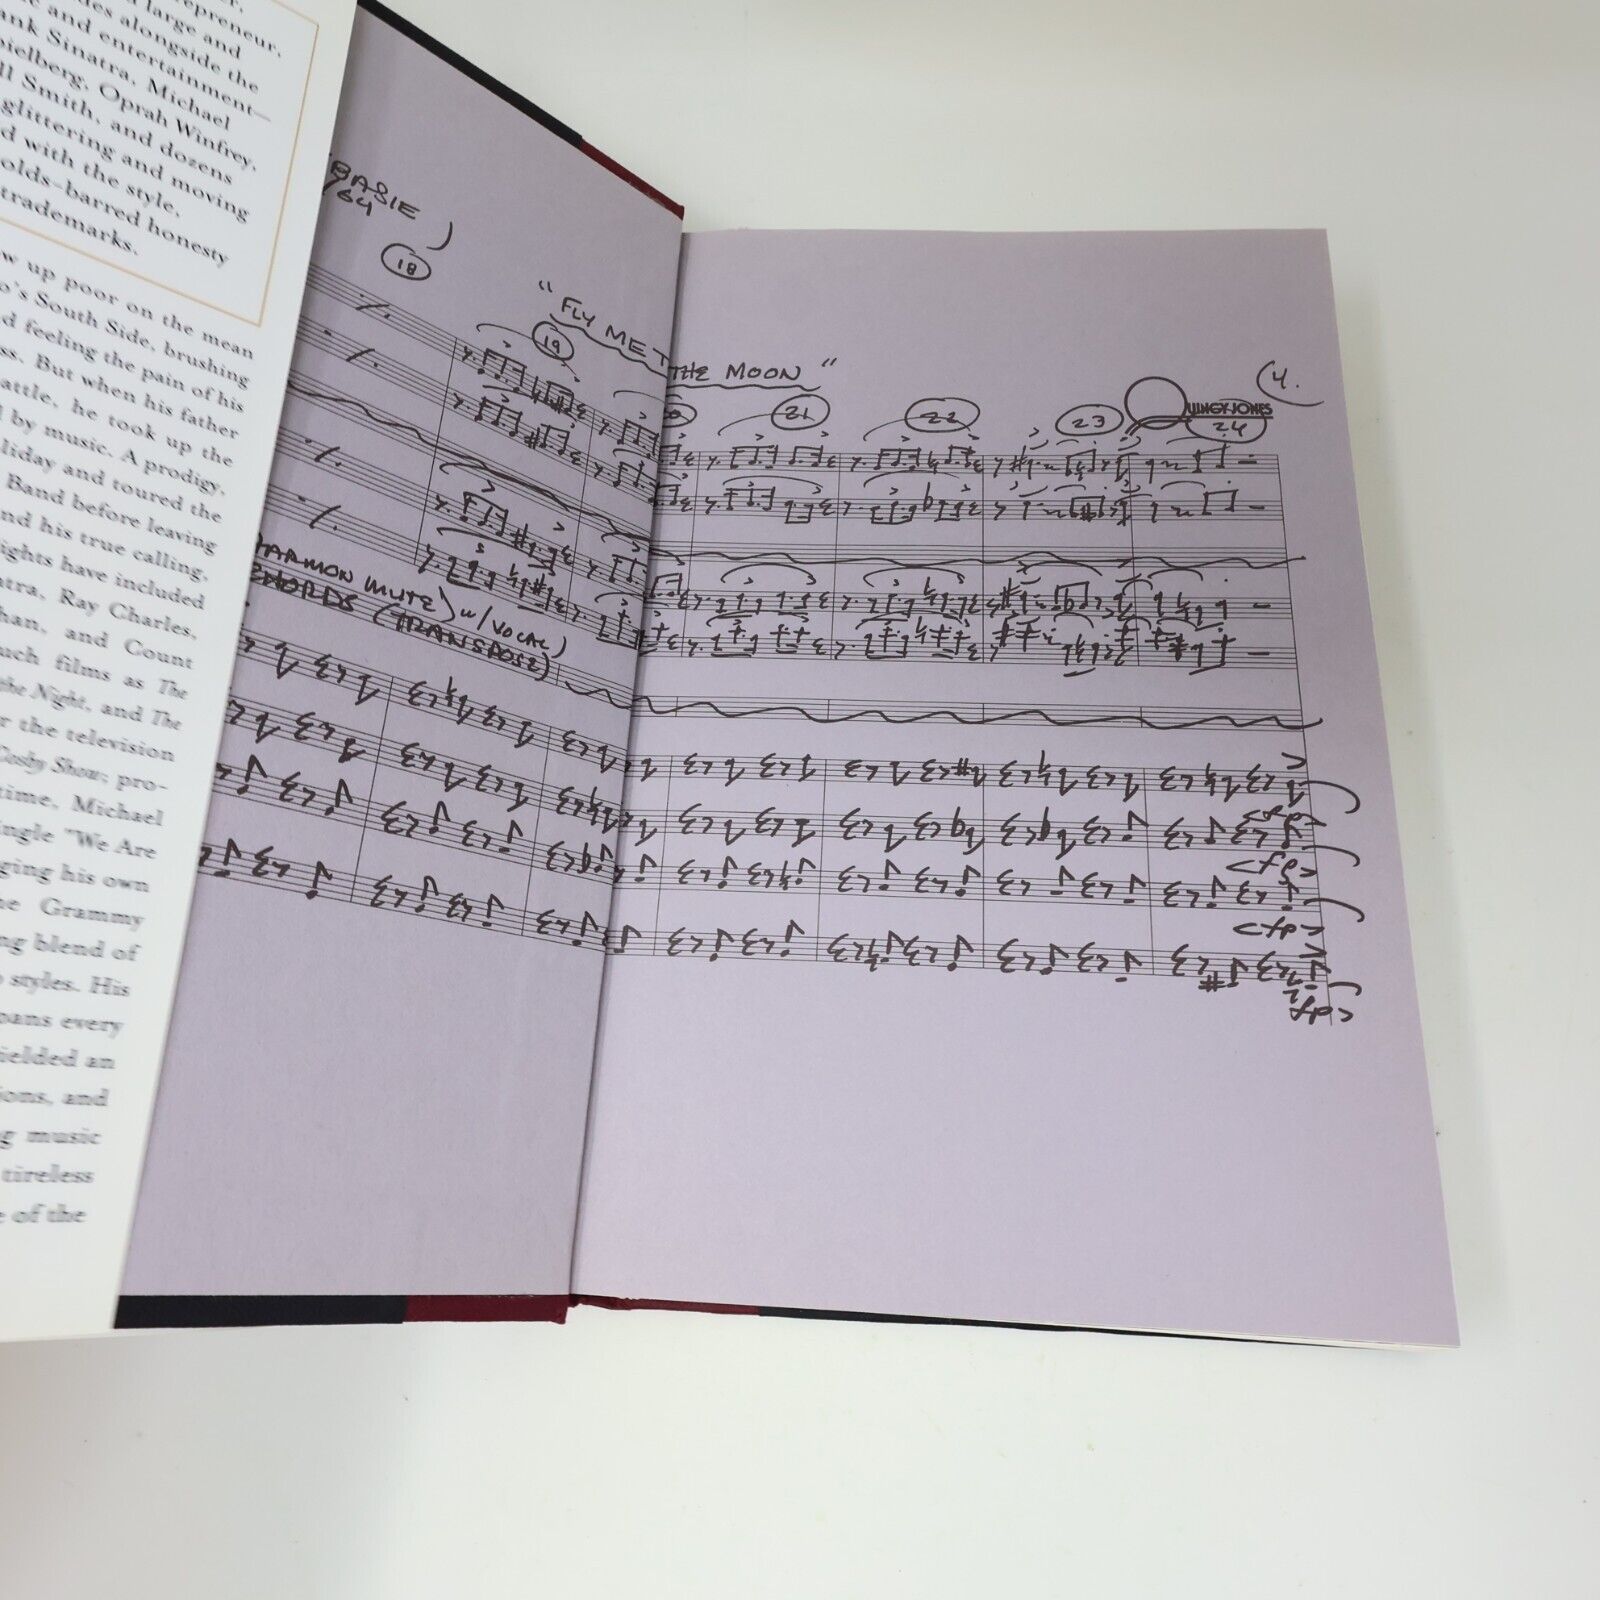 repreneur,
large and
des alongside the
and entertainment—
ank Sinatra, Michael
pielberg, Oprah Winfrey,
ll Smith, and dozens
glittering and moving
d with the style,
olds-barred honesty
trademarks.
ew up poor on the mean
o's South Side, brushing
d feeling the pain of his
ss. But when his father
attle, he took up the
l by music. A prodigy,
liday and toured the
Band before leaving
nd his true calling,
lights have included
atra, Ray Charles,
han, and Count
uch films as The
the Night, and The
r the television
Cosby Show; pro-
time, Michael
ingle "We Are
ging his own
he Grammy
ng blend of
styles. His
pans every
ielded an
ions, and
g music
tireless
e of the
BASIE
64
18
"FLY ME T THE MOON"
4.
QUINCY JONES
19 21 22 23 24
HARMON MUTE) w/ VOCAL)
CHORDS (TRANSPOSE)